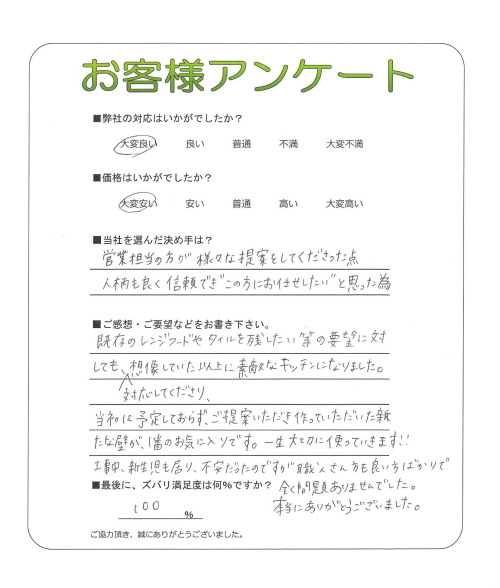 お客様アンケート
■弊社の対応はいかがでしたか？
大変良い 良い 普通 不満 大変不満
■価格はいかがでしたか？
大変安い 安い 普通 高い 大変高い
■当社を選んだ決め手は？
営業担当の方が様々な提案をしてくださった点
人柄も良く信頼でき"この方にお任せしたい"と思った為
■ご感想・ご要望などをお書き下さい。
既存のレンジフードやタイルを残したい等の要望に対
しても、想像していた以上に素敵なキッチンになりました。
対応してくださり、
当初は予定しておらず、ご提案いただき作っていただいた新
たな壁が、1番のお気に入りです。一生大切に使っていきます!!
工事中、新生児も居り、不安だったのですが職人さん方も良い方ばかりで
■最後に、ズバリ満足度は何％ですか？ 全く問題ありませんでした。
100 % 本当にありがとうございました。
ご協力頂き、誠にありがとうございました。